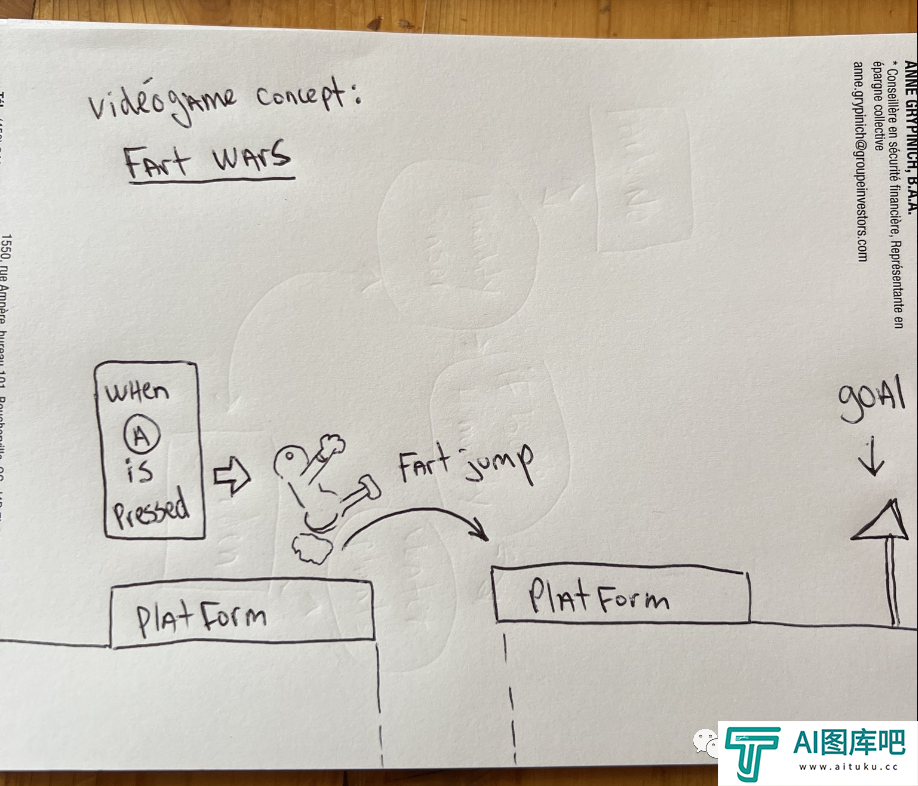 vidéogame concept:
FArt WARS
WHen
A
is
Pressed
FArt jump
goAl
PlAtForm
PlAtForm
ANNE GRYPINICH, B.A.A.
* Conseillère en sécurité financière, Représentante en
épargne collective
anne.grypinich@groupeinvestors.com
1550, rue Ampère, bureau 101, Boucherville, QC
AI图库吧
www.aituku.cc